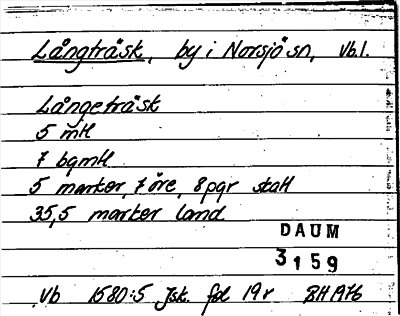 Långträsk, by i Norsjö sn, Vb.l.
Långeträsk
5 mtl
7 bgmtl
5 marker, 7 öre, 8 pgr skatt
35,5 marker land
DAUM
3159
Vb 1580:5 Jsk. fol 19r BH 1976